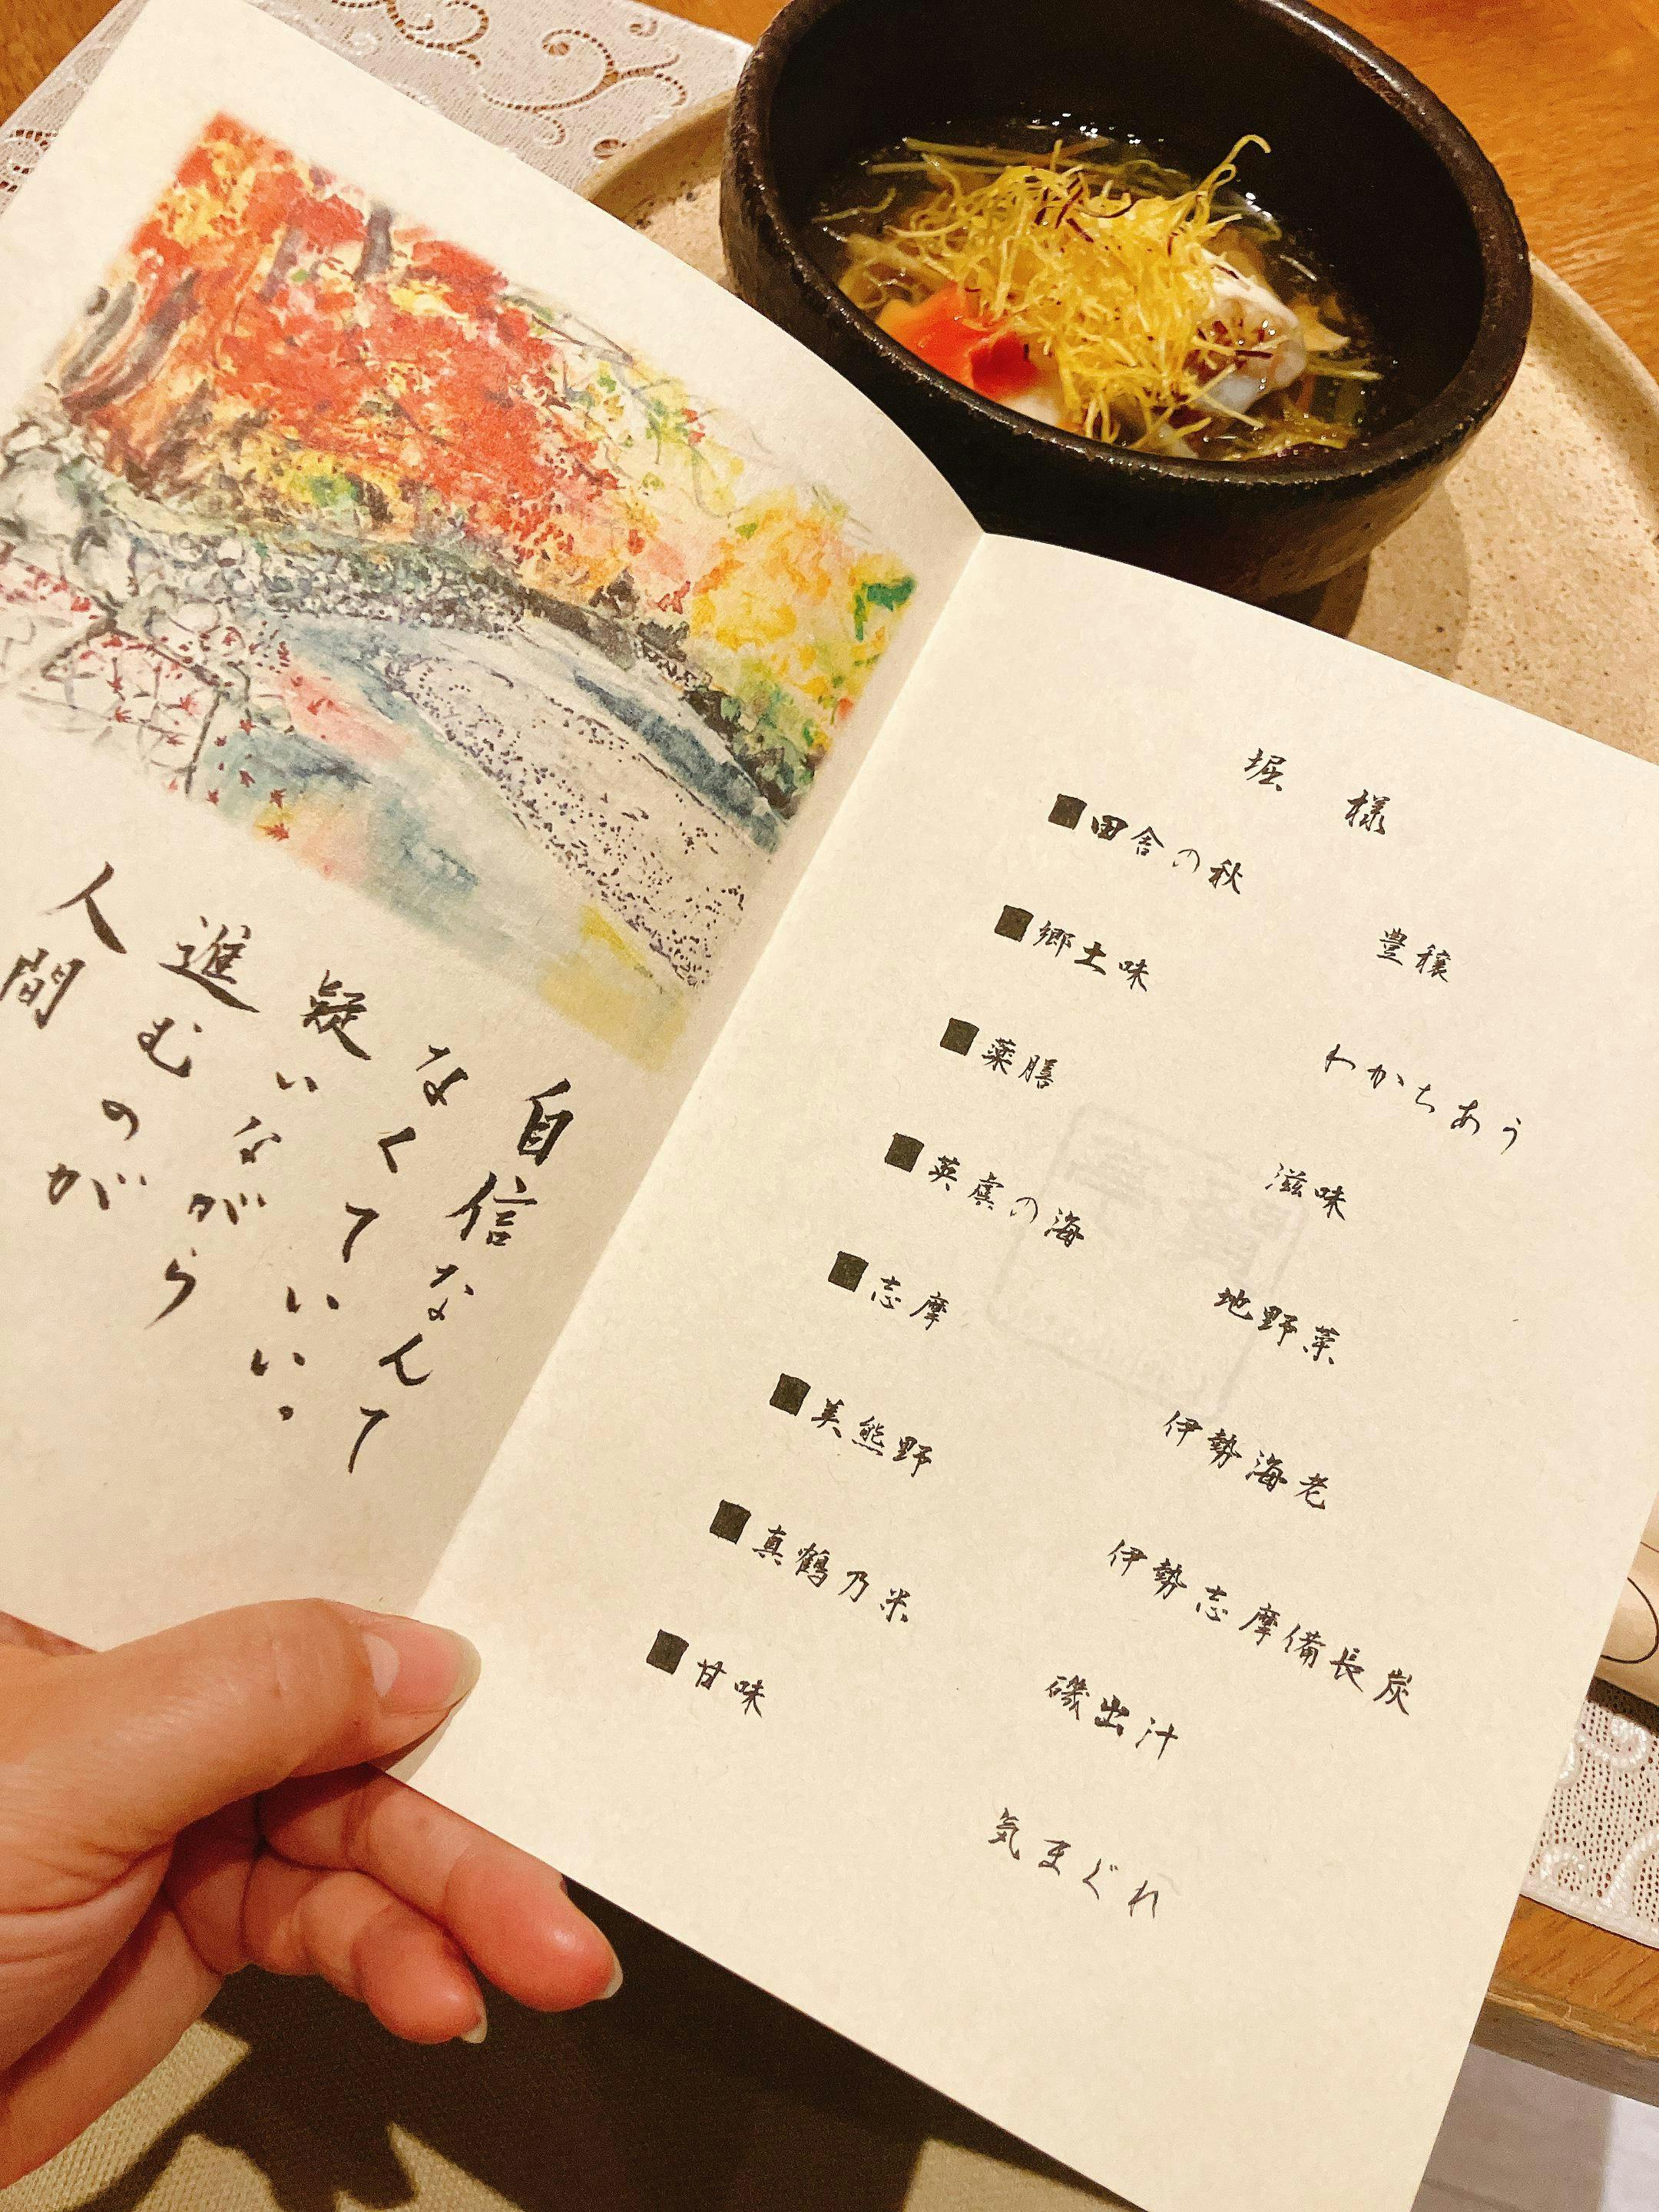 自信なんて
なくていい。
疑いながら
進むのが
人間
堀 様
■田舎の秋 豊穣
■郷土味 わかちあう
■薬膳 滋味
■英虞の海 地野菜
■志摩 伊勢海老
■美熊野 伊勢志摩備長炭
■真鶴乃米 磯出汁
■甘味 気まぐれ